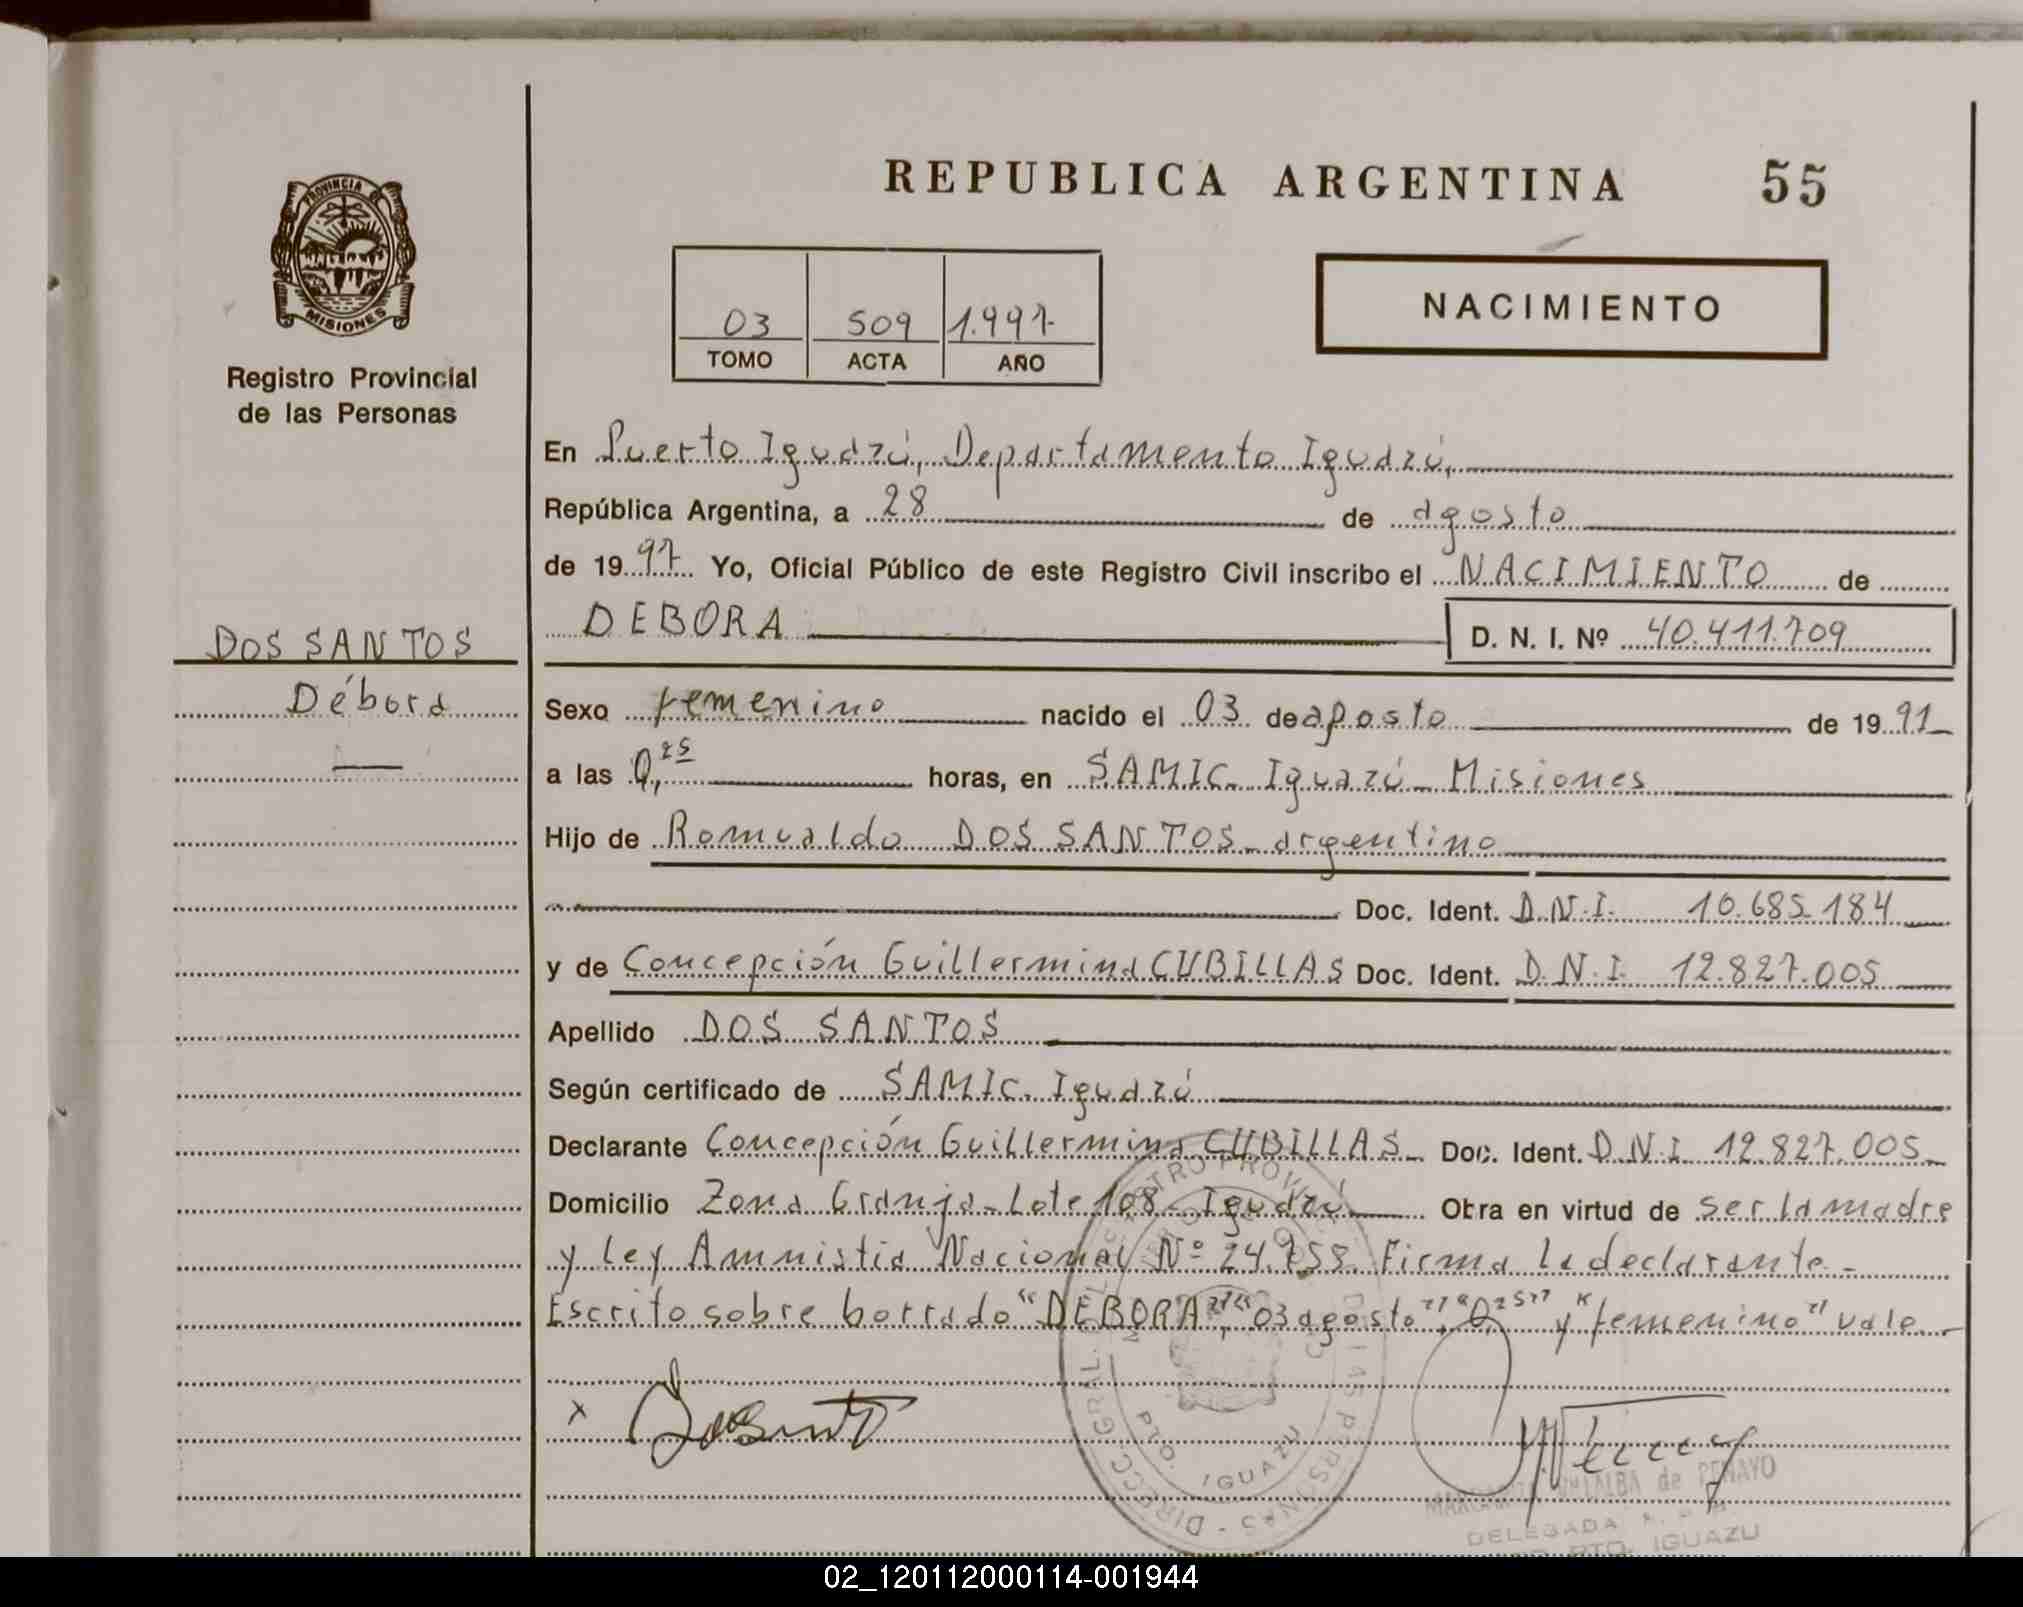 REPUBLICA ARGENTINA 55
PROVINCIA DE
MISIONES
Registro Provincial
de las Personas
03 509 1.997-
TOMO ACTA AÑO
NACIMIENTO
En Puerto Iguazú, Departamento Iguazú,
República Argentina, a 28 de agosto
de 1997 Yo, Oficial Público de este Registro Civil inscribo el NACIMIENTO de
DEBORA D. N. I. Nº 40.411.709
DOS SANTOS
Débora
Sexo femenino nacido el 03 de agosto de 1991
a las 0,25 horas, en SAMIC. Iguazú - Misiones
Hijo de Romualdo DOS SANTOS - argentino
Doc. Ident. D.N.I. 10.685.184
y de Concepción Guillermina CUBILLAS Doc. Ident. D.N.I. 12.827.005
Apellido DOS SANTOS
Según certificado de SAMIC. Iguazú
Declarante Concepción Guillermina CUBILLAS - Doc. Ident. D.N.I. 12.827.005
Domicilio Zona Granja - Lote 108 - Iguazú Obra en virtud de ser la madre
y Ley Amnistia Nacional Nº 24.755. Firma la declarante -
Escrito sobre borrado "DEBORA", "03 agosto", "0,25" y "femenino" vale
x
DIRECC. GRAL. DEL REGISTRO PROVINCIAL DE LAS PERSONAS
PTO. IGUAZU
VILLALBA de PENAYO
DELEGADA
PTO. IGUAZU
02_120112000114-001944